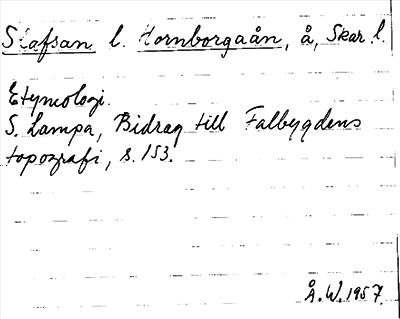 Slafsan l. Hornborgaån, å, Skar. l.
Etymologi.
S. Lampa, Bidrag till Falbygdens
topografi, s. 153.
Å. W. 1957.